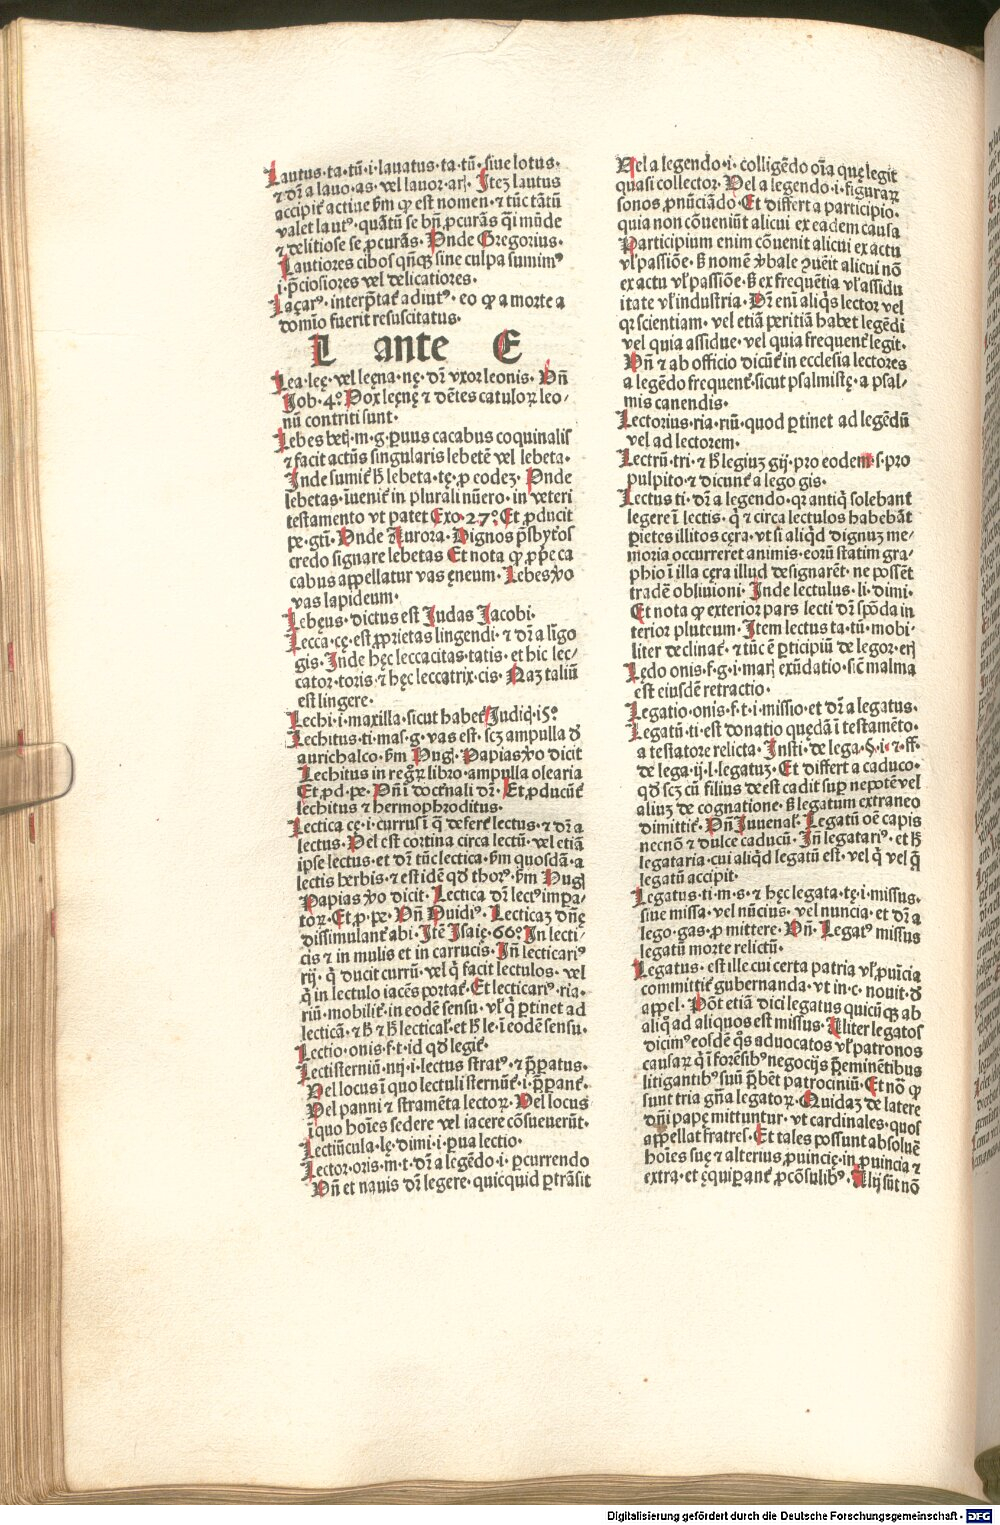 Lautus·ta·tū·i·lauatus·ta·tū·siue lotus·
⁊ dr̄ a lauo·as·vel lauor·arꝭ· Iteꝫ lautus
accipit᷑ actiue ẜm ꝙ est nomen·⁊ tūc tātū
valet laut᷒·quātū se bn̄ ꝓcurās q̄i mūde
⁊ delitiose se ꝓcurās· Vnde Gregorius·
Lautiores cibos qn̄qꝫ sine culpa sumim᷒
i·p̄ciosiores vel delicatiores·
Laçar᷒·interp̄tat᷑ adiut᷒·eo ꝙ a morte a
domīo fuerit resuscitatus·
L ante E
Lea·leę·vel leęna·nę·dr̄ vxor leonis· Vn̄
Job·4º Vox leęnę ⁊ dētes catuloꝝ leo⸗
nū contriti sunt·
Lebes betꝭ·m·g·ꝑuus cacabus coquinalis
⁊ facit actūs singularis lebetē vel lebeta·
Inde sumit᷑ hˀ lebeta·tę·ꝓ codeꝫ· Vnde
lebetas·īuenit᷑ in plurali nūero·in veteri
testamento vt patet Exo·27º Et ꝓducit
pe·gtī· Vnde Aurora· Dignos p̄sbytos
credo signare lebetas Et nota ꝙ ꝓpͤ ca
cabus appellatur vas ęneum· Lebes v̊o
vas lapideum·
Lebęus·dictus est Judas Jacobi·
Lecca·cę·est ꝓprietas lingendi·⁊ dr̄ a līgo
gis· Inde hęc leccacitas·tatis·et hic lec⸗
cator·toris·⁊ hęc leccatrix·cis· Naꝫ taliū
est lingere·
Lechi·i·maxilla·sicut habet᷑ Judiq̄·15º
Lechitus·ti·mas·g·vas est·scꝫ ampulla đ
aurichalco·ẜm Hug᷒· Papias v̊o dicit
Lechitus in regꝝ libro·ampulla olearia
Et ꝓd·pe· Vn̄ ī doctͥnali dr̄· Et ꝓducūt᷑
lechitus ⁊ hermophroditus·
Lectica cę·i·currus ī q̄ defert᷑ lectus·⁊ dr̄ a
lectus· Vel est cortina circa lectū·vel etiā
ipse lectus·et dr̄ tūc lectica·ẜm quosdā·a
lectis herbis·⁊ est idē qđ thor᷒·ẜm Hugꝭ
Papias v̊o dicit· Lectica dr̄ lect᷒ imꝑa⸗
toꝝ·Et ꝓ·pe· Vn̄ Ouidi᷒· Lecticaꝫ dn̄ę
dissimulant᷑ abi· Itē Isaię·66º In lecti⸗
cis ⁊ in mulis et in carrucis· In̄ lecticari᷒
rij·qͥ ducit currū·vel qͥ facit lectulos·vel
qͥ in lectulo iacēs portat᷑·Et lecticari᷒·ria·
riū·mobilit᷑·in eodē sensu·vl̓ qͥ ꝑtinet ad
lecticā·⁊ hˀ ⁊ hˀ lectical̓·et hˀ le·ī eodē sensu·
Lectio·onis·f·t·id qđ legit᷑·
Lectisterniū·nij·i·lectus strat᷒·⁊ p̄ꝑatus·
Vel locus ī quo lectuli sternūt᷑·i·p̄ꝑant᷑·
Vel panni ⁊ stramēta lectoꝝ· Vel locus
ī quo hoīes sedere vel iacere cōsueuerūt·
Lectiūcula·lę·dimi·i·ꝑua lectio·
Lector·oris·m·t·dr̄ a legēdo·i·ꝑcurrendo
Vn̄ et nauis dr̄ legere·quicquid ꝑtrāsit
Vel a legendo·i·colligēdo oīa quę legit
quasi collector· Vel a legendo·i·figuraꝝ
sonos ꝓnūciādo· Et differt a participio·
quia non cōueniūt alicui ex eadem causa
Participium enim cōuenit alicui ex actu
vl̓ passiōe· ẜ nomē v̓bale ꝯueīt alicui nō
ex actu vl̓ passiōe· ẜ ex frequētia vl̓ assidu
itate vl̓ industria· Dr̄ enī aliqͥs lector vel
qꝛ scientiam·vel etiā peritiā habet legēdi
vel quia assidue·vel quia frequent᷑ legit·
Vn̄ ⁊ ab officio dicūt᷑ in ecclesia lectores
a legēdo frequent᷑·sicut psalmistę·a psal⸗
mis canendis·
Lectorius·ria·riū·quod ꝑtinet ad legēdū
vel ad lectorem·
Lectrū·tri·⁊ hˀ legiuꝫ gij·pro eodem·s·pro
pulpito·⁊ dicunt᷑ a lego gis·
Lectus ti·dr̄ a legendo·qꝛ antiqͥ solebant
legere ī lectis·qͥ ⁊ circa lectulos habebāt
ꝑietes illitos cęra·vt si aliqͥd dignuꝫ me⸗
moria occurreret animis·eorū statim gra⸗
phio ī illa cęra illud designarēt·ne possēt
tradē obliuioni· Inde lectulus·li·dimi·
Et nota ꝙ exterior pars lecti dr̄ spōda in
terior pluteum· Item lectus ta·tū·mobi·
liter declinat᷑·⁊ tūc ē ꝑticipiū de legor·erꝭ
Lędo onis·f·g·i·marꝭ exūdatio·sic̄ malma
est eiusdē retractio·
Legatio·onis·f·t·i·missio·et dr̄ a legatus·
Legatū·ti·est donatio quędā ī testamēto·
a testatore relicta· Insti·de lega·§·i·⁊·ff·
de lega·ij·l·legatuꝫ· Et differt a caduco·
qđ scꝫ cū filius deest cadit suꝑ nepotē vel
aliuꝫ de cognatione· ẜ legatum extraneo
dimittit᷑· Vn̄ Juuenal̓· Legatū oē capis
necnō ⁊ dulce caducū· In̄ legatari᷒·et hˀ
legataria·cui aliqͥd legatū est·vel qͥ vel q̄
legatū accipit·
Legatus·ti·m·s·⁊ hęc legata·tę·i·missus·
siue missa·vel nūcius·vel nuncia·et dr̄ a
lego·gas·ꝓ mittere· Vn̄· Legat᷒ missus
legatū morte relictū·
Legatus·est ille cui certa patria vl̓ ꝓuīcia
committit᷑ gubernanda·vt in·c·nouit·đ
appel· Pōt etiā dici legatus quicūqꝫ ab
aliqͦ ad aliquos est missus· Aliter legatos
dicim᷒ eosdē qͦs aduocatos vl̓ patronos
causaꝝ qͥ ī forēsib᷒ negocijs p̄eminētibus
litigantib᷒ suū p̄bēt patrociniū· Et nō ꝙ
sunt tria gn̄a legatoꝝ· Quidaꝫ de latere
dn̄i papę mittuntur·vt cardinales·quos
appellat fratres· Et tales possunt absoluē
hoīes suę ⁊ alterius ꝓuincię·in ꝓuincia ⁊
extra·et ęquiꝑant᷑ ꝓcōsulib᷒· Alij sūt nō
Digitalisierung gefördert durch die Deutsche Forschungsgemeinschaft - DFG